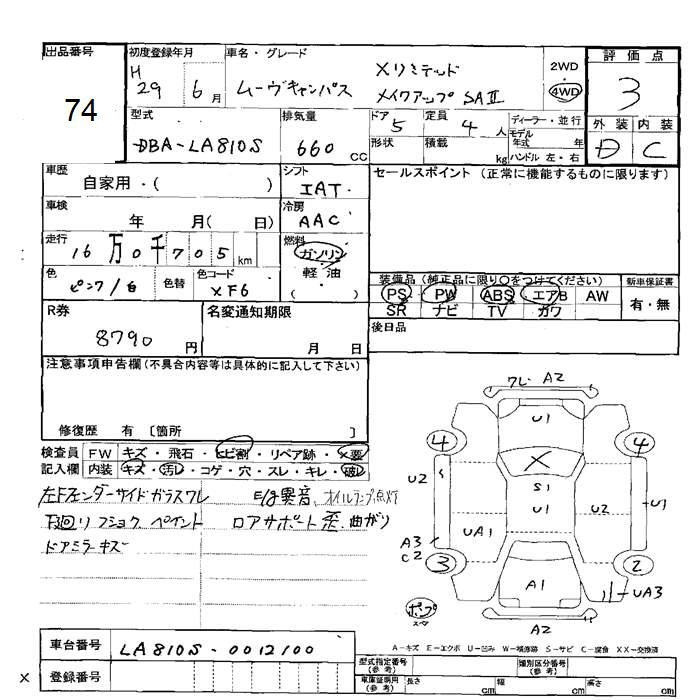 出品番号
74
初度登録年月
H 29 6 月
車名・グレード
ムーヴキャンバス
Xリミテッド
メイクアップ SAⅡ
2WD
4WD
評価点
3
型式
DBA-LA810S
排気量
660 CC
ドア
5
定員
4 人
形状
積載
kg
ディーラー・並行
モデル
年式 年
ハンドル 左・右
外装 内装
D C
車歴
自家用・( )
シフト
IAT
車検
年 月( 日)
冷房
AAC
走行
16 万 0 千 7 0 5 km
燃料
ガソリン
軽油
( )
色
ピンク/白
色替
色コード
XF6
セールスポイント (正常に機能するものに限ります)
装備品(純正品に限り○をつけてください)
PS PW ABS エアB AW
SR ナビ TV カワ
新車保証書
有・無
R券
8790 円
名変通知期限
月 日
後日品
注意事項申告欄(不具合内容等は具体的に記入して下さい)
修復歴 有 〔箇所 〕
検査員 FW キズ・飛石・ヒビ割・リペア跡・X要
記入欄 内装 キズ・汚レ・コゲ・穴・スレ・キレ・破レ
左Fフェンダーサイドガラスワレ
E/G異音、オイルランプ点灯
下廻り フショク ペイント
ロアサポート歪、曲がり
ドアミラーキズ
ワレ A2
U1
4
4
X
S1
U2
U1
U2
U1
UA1
A3
C2
3
2
A1
UA3
A2
A-キズ E-エクボ U-凹み W-補修跡 S-サビ C-腐食 XX-交換済
車台番号
LA810S-0012100
X
登録番号
型式指定番号
(参考)
類別区分番号
(参考)
車庫証明用
(参考)
長さ cm
幅 cm
高さ cm